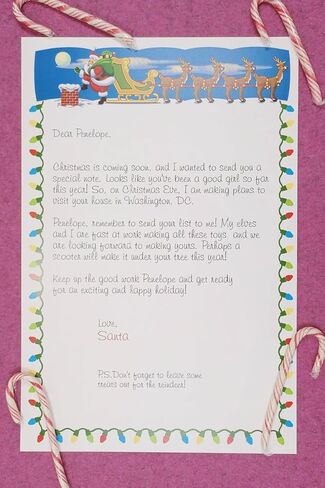 Dear Penelope,
Christmas is coming soon, and I wanted to send you a
special note. Looks like you've been a good girl so far
this year! So, on Christmas Eve, I am making plans to
visit your house in Washington, DC.
Penelope, remember to send your list to me! My elves
and I are fast at work making all these toys, and we
are looking forward to making yours. Perhaps a
scooter will make it under your tree this year!
Keep up the good work Penelope and get ready
for an exciting and happy holiday!
Love,
Santa
P.S. Don't forget to leave some
treats out for the reindeer!